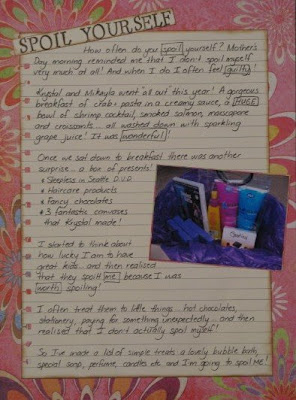 SPOIL YOURSELF
How often do you spoil yourself? Mother's
Day morning reminded me that I don't spoil myself
very much at all! And when I do I often feel guilty!
Krystal and Mikayla went all out this year! A gorgeous
breakfast of crab & pasta in a creamy sauce, a HUGE
bowl of shrimp cocktail, smoked salmon, mascapone
and croissants... all washed down with sparkling
grape juice! It was wonderful!
Once we sat down to breakfast there was another
surprise... a box of presents!
* Sleepless in Seattle D.V.D
* Haircare products
* Fancy chocolates
* 3 fantastic canvases
that Krystal made!
I started to think about
how lucky I am to have
great kids... and then realised
that they spoilt me because I was
worth spoiling!
I often treat them to little things... hot chocolates,
stationery, paying for something unexpectedly... and then
realised that I don't actually spoil myself!
So I've made a list of simple treats: a lovely bubble bath,
special soap, perfume, candles etc and I'm going to spoil ME!